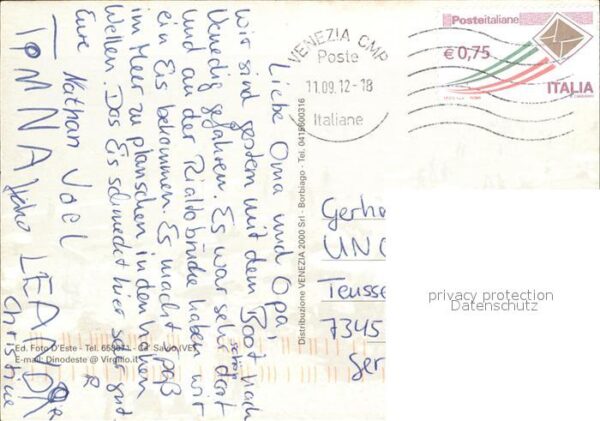 Liebe Oma und Opa,
wir sind gestern mit dem Boot nach
Venedig gefahren. Es war sehr schön dort
und an der Rialtobrücke haben wir
ein Eis bekommen. Es macht Spaß
im Meer zu planschen in den hohen
Wellen. Das Eis schmeckt hier sehr gut.
Eure Nathan Joel
TOM NA LEANDER
Heiko
Christine
Distribuzione VENEZIA 2000 Srl - Borbiago - Tel. 0415600316
Ed. Foto D'Este - Tel. 658071 - Ca' Savio (VE)
E-mail: Dinodeste @ Virgilio.it
VENEZIA CMP
Poste
11.09.12-18
Italiane
Posteitaliane
€ 0,75
ITALIA
Gerha
UNG
Teusse
7345
Ger
privacy protection
Datenschutz